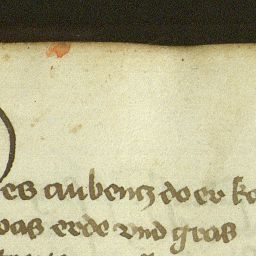 es aubentz do er ko
was erde vnd gras